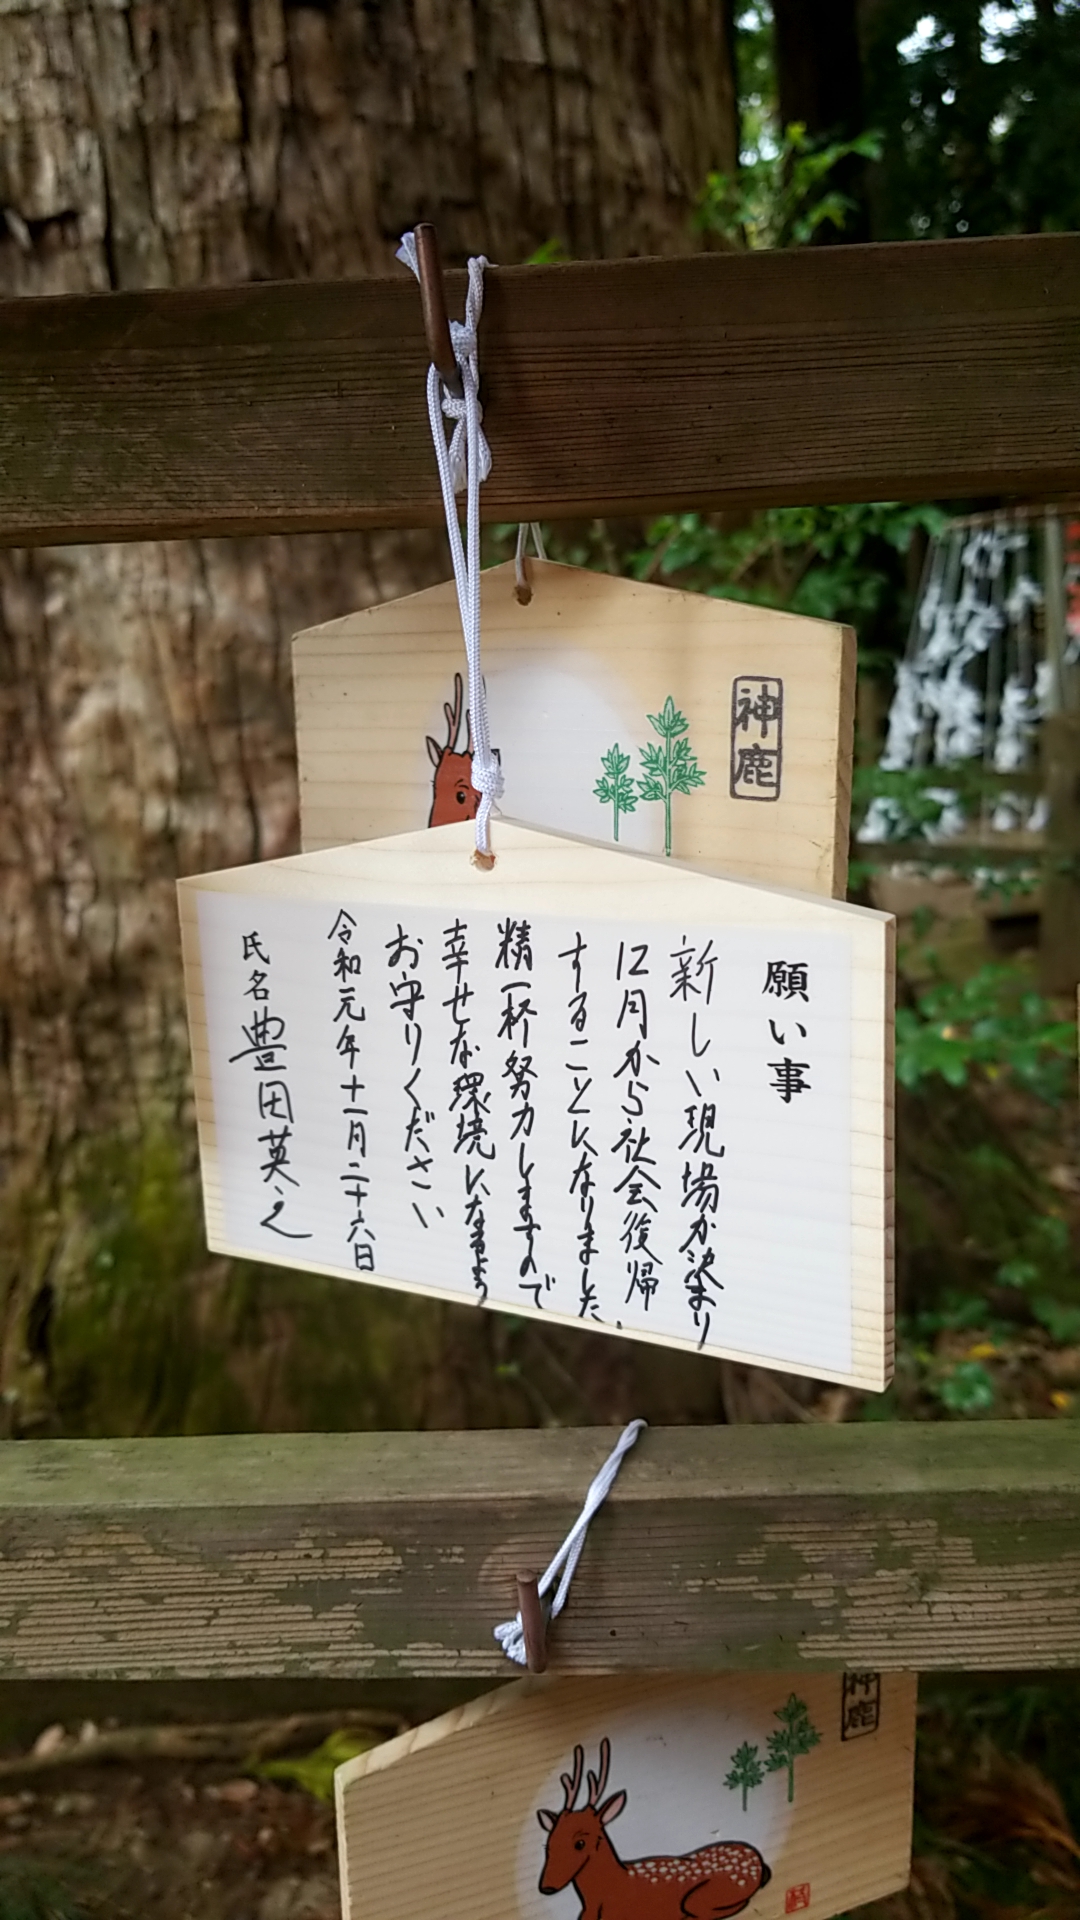 神鹿
願い事
新しい現場が決まり
12月から社会復帰
することになりました.
精一杯努力しますので
幸せな環境になるよう
お守りください
令和元年十一月二十六日
氏名 豊田英之
神鹿